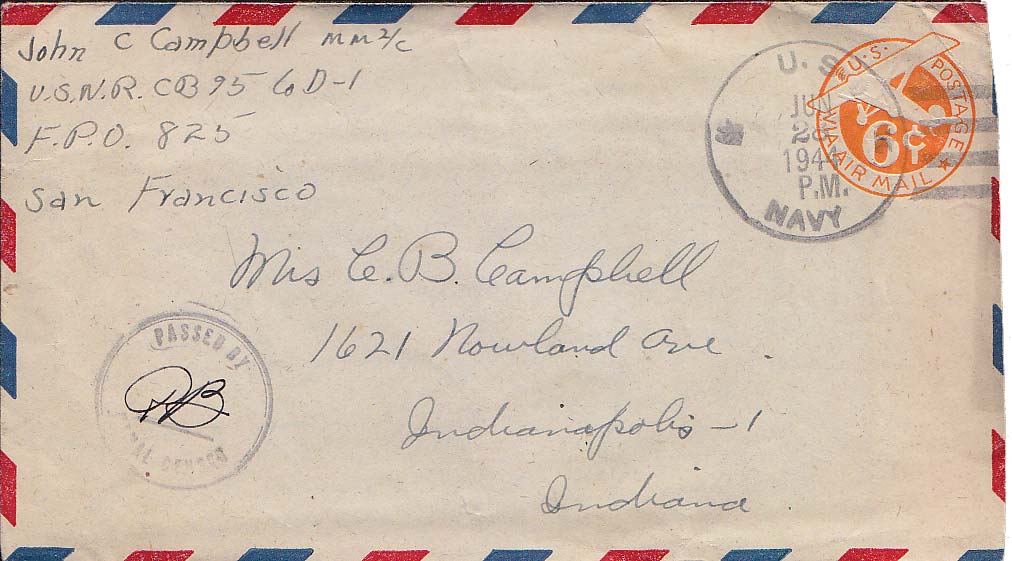 John C Campbell MM2/C
U.S.N.R. CB 95 Co D-1
F.P.O. 825
San Francisco
U.S.
JUN
1944
P.M.
NAVY
U.S. POSTAGE
6¢
VIA AIR MAIL
Mrs C. B. Campbell
1621 Nowland Ave
Indianapolis - 1
Indiana
PASSED BY
NAVAL CENSOR